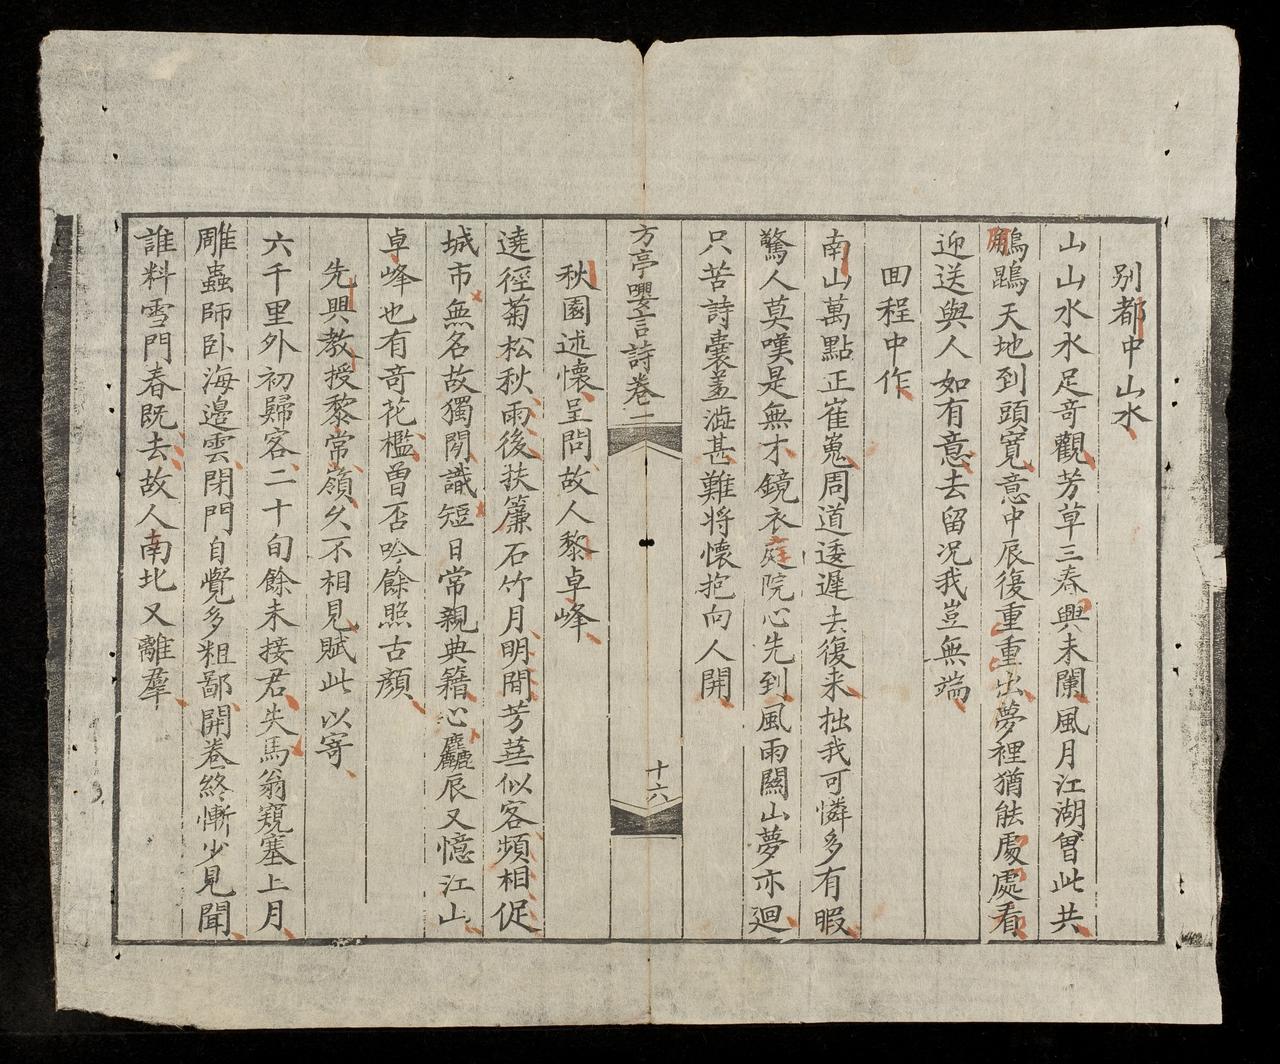 別都中山水
山山水水足竒觀芳草三春興未闌風月江湖曾此共
鵬鵾天地到頭寬意中辰復重重出夢裡猶能處處看
迎送與人如有意去留况我豈無端
回程中作
南山萬點正崔嵬周道逶遲去復来拙我可憐多有暇
驚人莫嘆是無才鏡衣庭院心先到風雨關山夢亦迴
只苦詩囊羞澁甚難将懐抱向人開
方亭嚶言詩卷二
十六
秋園述懐呈問故人黎卓峰
遶徑菊松秋雨後扶簾石竹月明閒芳菲似客頻相促
城市無名故獨閒識短日常親典籍心麤辰又憶江山
卓峰也有竒花檻曽否吟餘照古顔
先興教授黎常嶺久不相見賦此以寄
六千里外初歸客二十旬餘未接君失馬翁窺塞上月
雕蟲師卧海邉雲閉門自覺多粗鄙開卷終慚少見聞
誰料雪門春既去故人南北又離羣